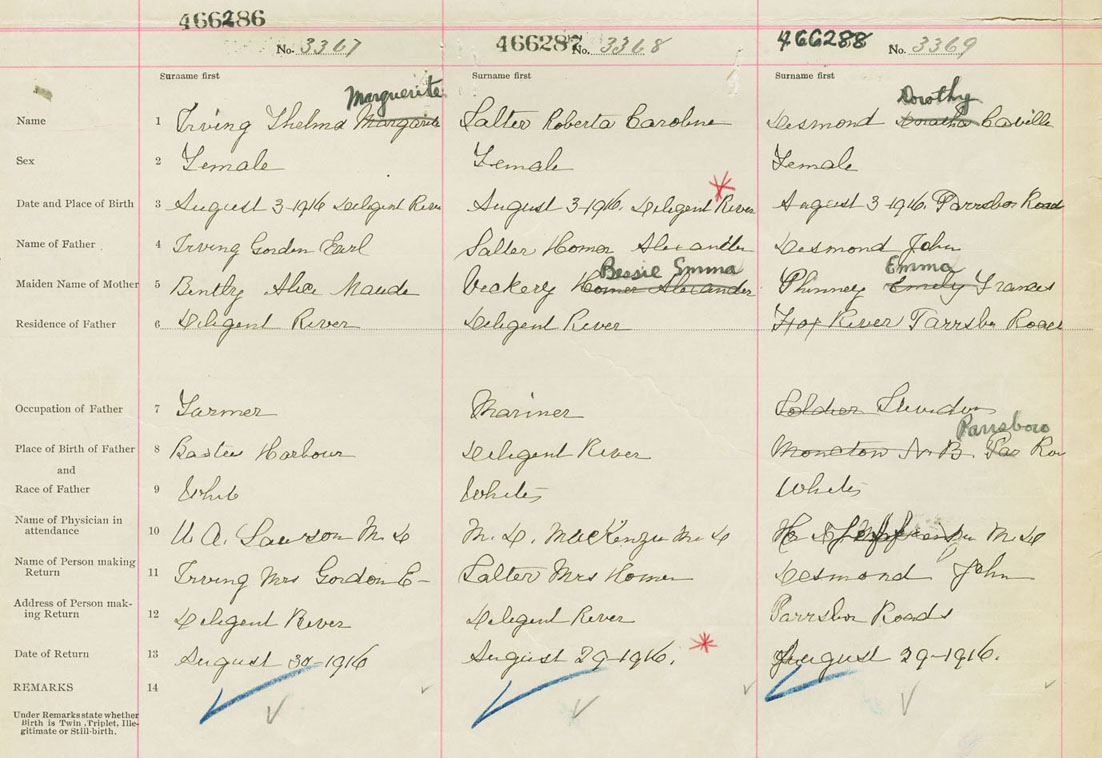 466286
466287
466288
No. 3367
No. 3368
No. 3369
Surname first
Surname first
Surname first
Marguerite
Dorothy
Name 1 Irving Thelma Margarite
Salter Roberta Caroline
Desmond Doratha Caville
Sex 2 Female
Female
Female
Date and Place of Birth 3 August 3-1916 Deligent River
August 3-1916. Deligent River
August 3-1916. Parrsboro Road
Name of Father 4 Irving Gorden Earl
Salter Homer Alexander
Desmond John
Bessie Emma
Emma
Maiden Name of Mother 5 Bently Alice Maude
Vickery Homer Alexander
Phinney Emely Frances
Residence of Father 6 Deligent River
Deligent River
Fox River Parrsboro Road
Occupation of Father 7 Farmer
Mariner
Soldier
Parrsboro
Place of Birth of Father 8 Harbour
Deligent River
Moncton N.B.
and
Race of Father 9 White
White
White
Name of Physician in
attendance 10 U. A. Lawson M.D
M. D. MacKenzie M.D
M.D
Name of Person making
Return 11 Irving Mrs Gordon E-
Salter Mrs Homer
Desmond John
Address of Person mak-
ing Return 12 Deligent River
Deligent River
Parrsboro Roads
Date of Return 13 August 30-1916
August 29-1916.
August 29-1916.
REMARKS 14
Under Remarks state whether
Birth is Twin, Triplet, Ille-
gitimate or Still-birth.